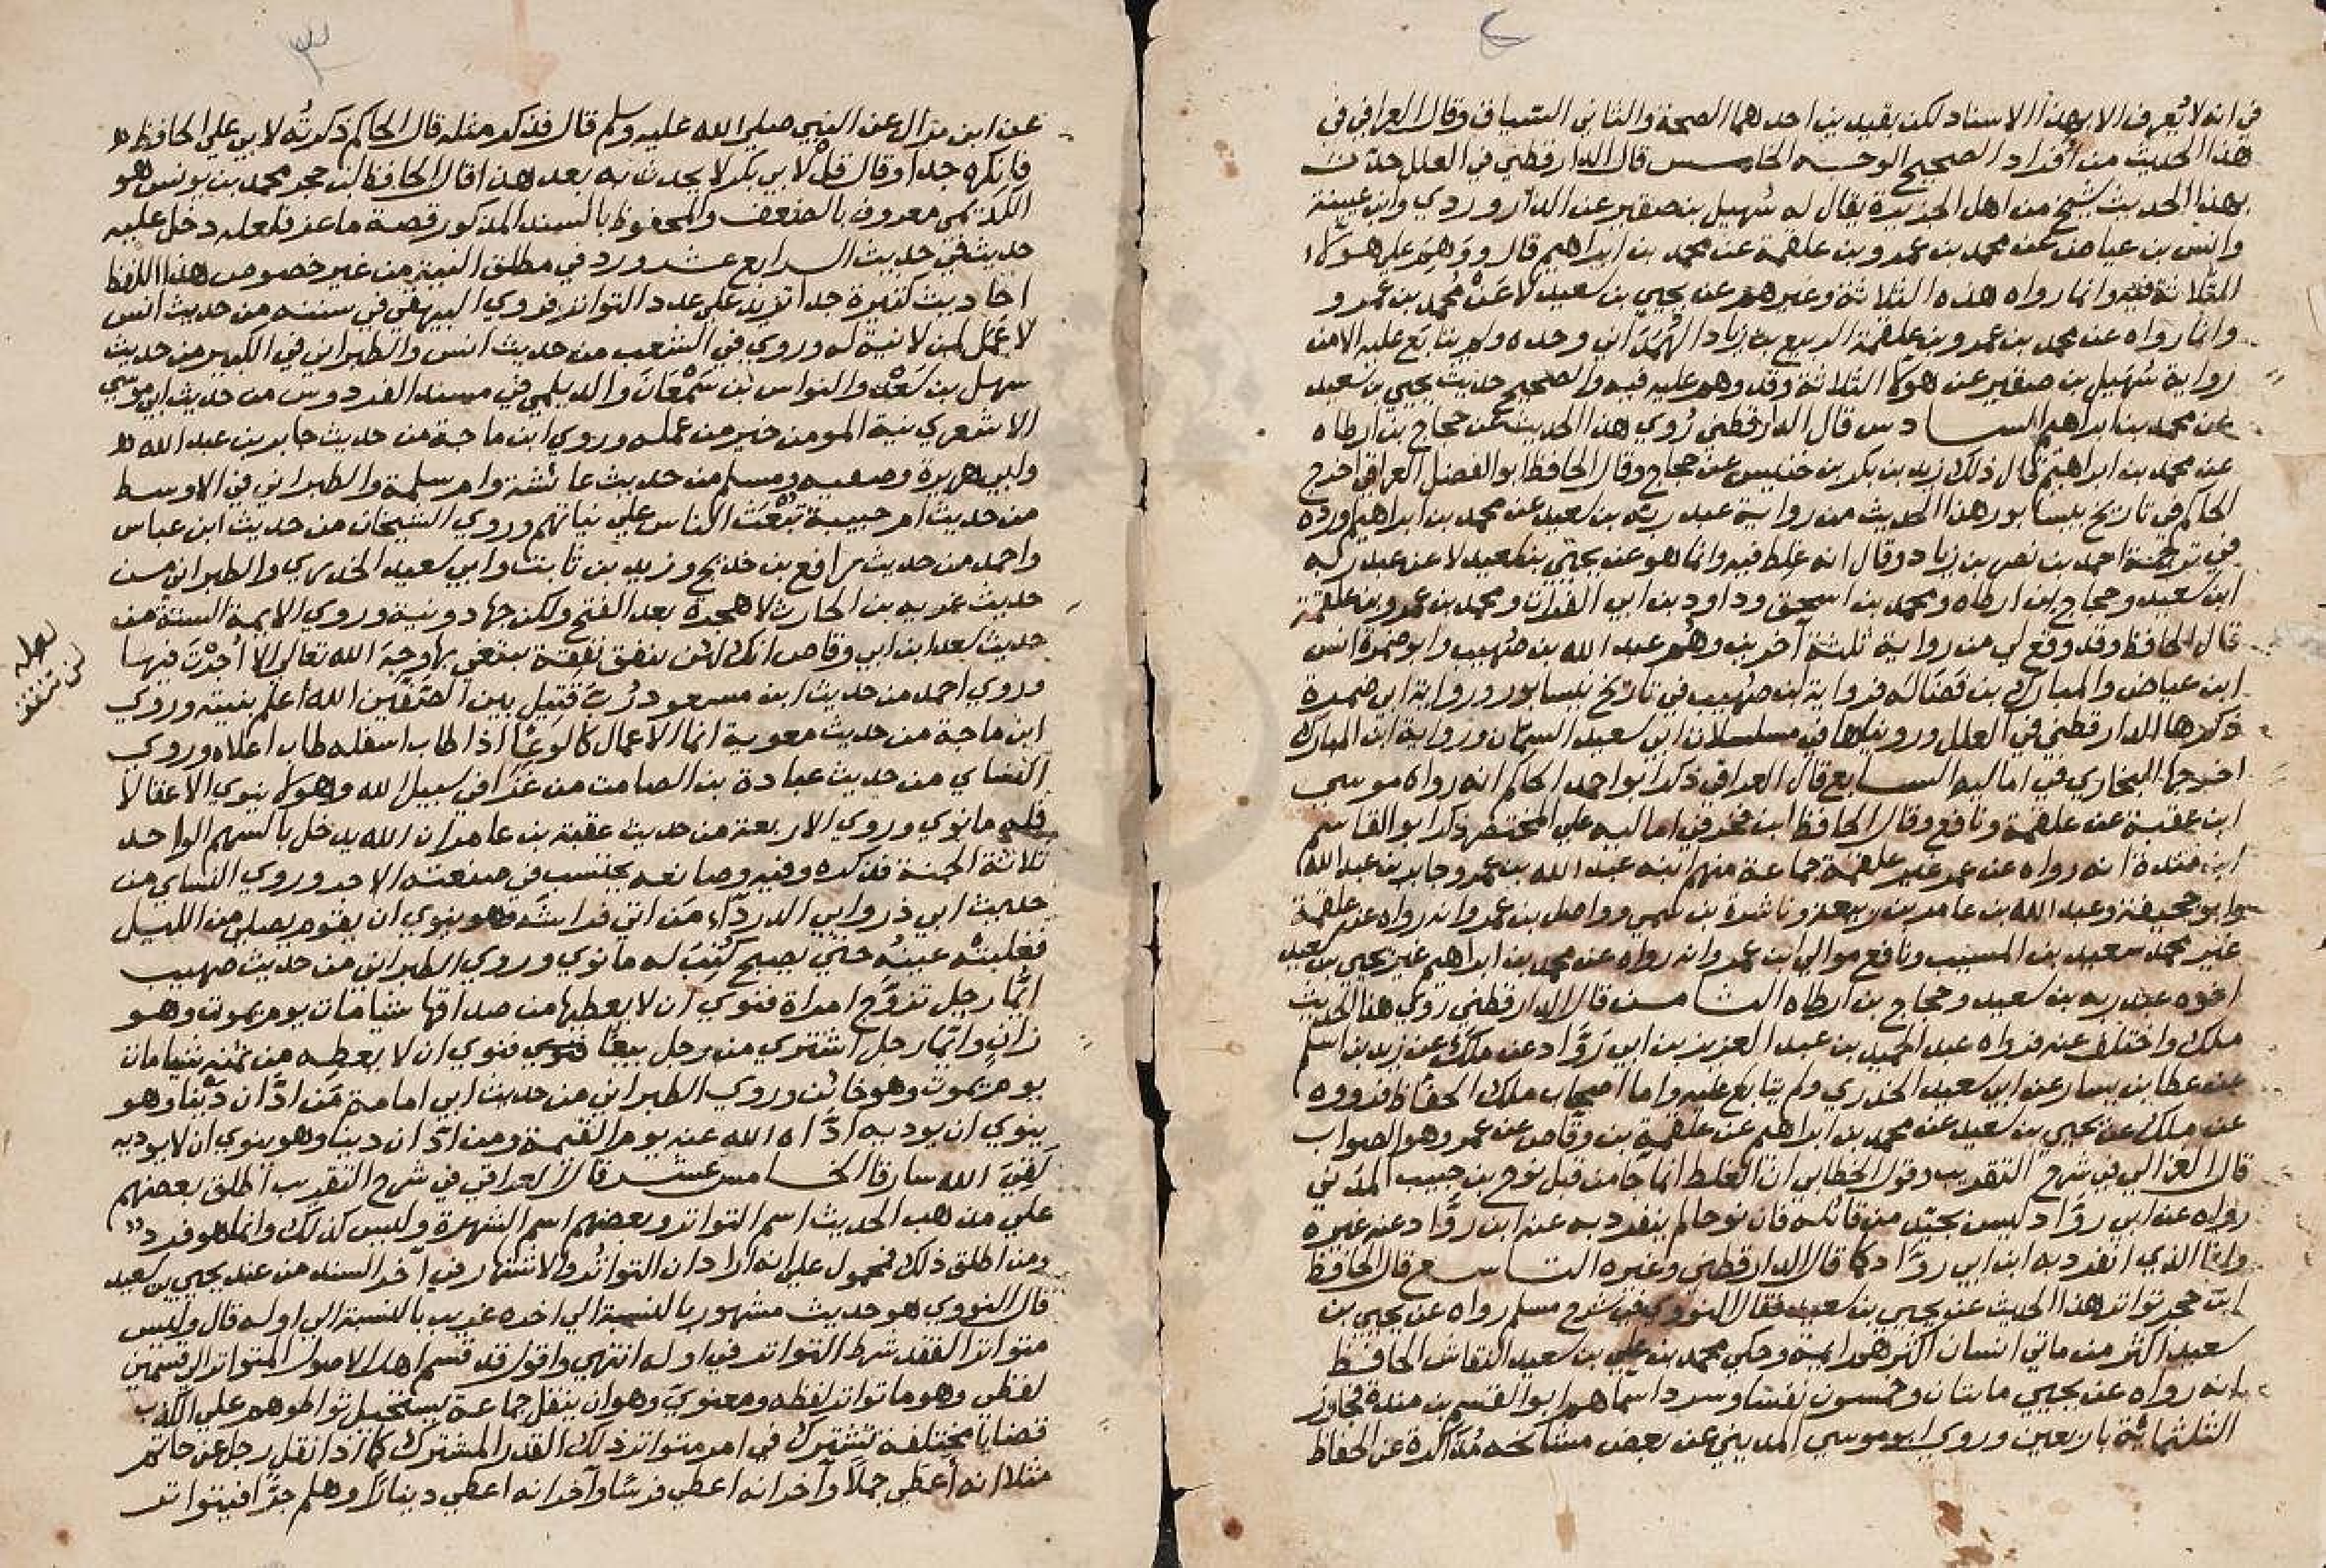 في انه لا يعرف الا بهذا الاسناد لكن بقيدين احدهما الصحة والثاني السياق وقال العراقي في
هذا الحديث من افراد الصحيح الوجه الخامس قال الدارقطني في العلل حدث
بهذا الحديث شيخ من اهل الجزيرة يقال له سهيل بن صقير عن الدراوردي وابن عيينة
وانس بن عياض عن محمد بن عمرو بن علقمة عن محمد بن ابراهيم قال ووهم علي هولاء
الثلاثة فيه وانما رواه هذه الثلاثة وغيرهم عن يحيي بن سعيد لا عن محمد بن عمرو
وانما رواه عن محمد بن عمرو بن علقمة الربيع بن زياد الهمداني وحده ولم يتابع عليه الا من
رواية سهيل بن صقير عن هولاء الثلاثة وقد وهم عليه فيه والصحيح حديث يحيي بن سعيد
عن محمد بن ابراهيم السادس قال الدارقطني روي هذا الحديث عن حجاج بن ارطاه
عن محمد بن ابراهيم قال ذلك زيد بن بكر بن خنيس عن حجاج وقال الحافظ ابو الفضل العراقي اخرج
الحاكم في تاريخ نيسابور هذا الحديث من رواية عبد ربه بن سعيد عن محمد بن ابراهيم ورده
في ترجمة احمد بن نصر بن زياد وقال انه غلط فيه وانما هو عن يحيي بن سعيد لا عن عبد ربه
ابن سعيد وحجاج ابن ارطاه ومحمد بن اسحق وداود بن ابي الفرات ومحمد بن عمرو بن علقمة
قال الحافظ وقد وقع لي من رواية ثلثة آخرين وهم عبد الله بن صهيب وابو ضمرة انس
ابن عياض والمبارك بن فضاله فرواية ابن صهيب في تاريخ نيسابور ورواية ابي ضمرة
ذكرها الدارقطني في العلل ورويناها في مسلسلات ابي سعيد السمان ورواية ابن المبارك
اخرجها البخاري في اماليه السابع قال العراقي ذكر ابو احمد الحاكم انه رواه موسي
ابن عقبة عن علقمة ونافع وقال الحافظ ابن حجر في اماليه علي المختصر ذكر ابو القاسم
ابن مندة انه رواه عن عمر غير علقمة جماعة منهم ابنه عبد الله بن عمر وجابر بن عبد الله
وابو جحيفة وعبد الله بن عامر بن ربيعة وناشرة بن سمي وواصل بن عمرو وانه رواه عن علقمة
غير محمد سعيد بن المسيب ونافع موالي ابن عمر وانه رواه عن محمد بن ابراهيم غير يحيي بن سعيد
اخوه عبد ربه بن سعيد وحجاج بن ارطاه الثامن قال الدارقطني روي هذا الحديث
ملك واختلف عنه فرواه عبد المجيد بن عبد العزيز بن ابي روّاد عن ملك عن زيد بن اسلم
عن عطا بن يسار عن ابي سعيد الخدري ولم يتابع عليه واما اصحاب ملك الحفاظ فرووه
عن ملك عن يحيي بن سعيد عن محمد بن ابراهيم عن علقمة بن وقاص عن عمر وهو الصواب
قال العراقي في شرح التقريب وقول الخطابي ان الغلط انما جا من قبل نوح بن حبيب المذني
رواه عن ابي روّاد ليس بجيد من قائله فان نوحا لم ينفرد به عن ابن روّاد عنه غيره
وانما الذي انفرد به ابن ابي روّاد كما قال الدارقطني وغيره التاسع قال الحافظ
ابن حجر تواتر هذا الحديث عن يحيي بن سعيد فقال النووي في شرح مسلم رواه عن يحيي بن
سعيد اكثر من مائتي انسان اكثرهم ايمة وحكي محمد بن علي بن سعيد النقاش الحافظ
انه رواه عن يحيي مائتان وخمسون نفسا وسرد اسماهم ابو القسم بن مندة فجاوز
الثلثمائة باربعين وروي ابو موسي المديني عن بعض مشائخه مذاكرة عن الحفاظ
عن ابن بزال عن النبي صلي الله عليه وسلم قال فذكر مثله قال الحاكم ذكرته لابي علي الحافظ
فانكره جدا وقال قل لابي بكر لا يحدث به بعد هذا قال الحافظ ابن حجر محمد بن يونس هو
الكديمي معروف بالضعف والمحفوظ بالسند المذكور قصة ماعز فلعله دخل عليه
حديث في حديث الرابع عشر ورد في مطلق النية من غير خصوص هذا اللفظ
احاديث كثيرة جدا تزيد علي عدد التواتر فروي البيهقي في سننه من حديث انس
لا عمل لمن لا نية له وروي في الشعب من حديث انس والطبراني في الكبير من حديث
سهل بن سعد والنواس بن سمعان والديلمي في مسند الفردوس من حديث ابي موسي
الاشعري نية المومن خير من عمله وروي ابن ماجة من حديث جابر بن عبد الله
وابي هريرة وصفيه ومسلم من حديث عائشة وام سلمة والطبراني في الاوسط
من حديث ام حبيبة تبعث الناس علي نياتهم وروي الشيخان من حديث ابن عباس
واحمد من حديث رافع بن خديج وزيد بن ثابت وابي سعيد الخدري والطبراني من
حديث غزيه بن الحارث لا هجرة بعد الفتح ولكن جهاد ونية وروي الايمة الستة من
حديث سعد ابن ابي وقاص انك لن تنفق نفقة تبتغي بها وجه الله تعالي الا أجرت فيها
لعله
لن تنفق
وروي احمد من حديث ابن مسعود رُبّ قتيل بين الصفين الله أعلم بنيته وروي
ابن ماجة من حديث معوية انما الاعمال كالوعا اذا طاب اسفله طاب اعلاه وروي
النساي من حديث عبادة بن الصامت من غزا في سبيل الله وهو لا ينوي الا عقالا
فله ما نوي وروي الاربعة من حديث عقبة بن عامر ان الله يدخل بالسهم الواحد
ثلاثة الجنة فذكره وفيه وصانعه يحتسب في صنعته الاجر وروي النساي من
حديث ابي ذر وابي الدرداء من اتي فراشه وهو ينوي ان يقوم يصلي من الليل
فغلبته عينه حتي يصبح كُتب له ما نوي وروي الطبراني من حديث صهيب
ايّما رجل تزوّج امراة فنوي ان لا يعطيها من صداقها شيا مات يوم يموت وهو
زان وايّما رجل اشتري من رجل بيعًا فنوي ان لا يعطيه من ثمنه شيا مات
يوم يموت وهو خائن وروي الطبراني من حديث ابي امامة مَن ادّان دينا وهو
ينوي ان يوديه ادّاه الله عنه يوم القيمة ومن ادّان دينا وهو ينوي ان لا يوديه
لقي الله سارقا الخامس عشر قال العراقي في شرح التقريب اطلق بعضهم
علي من هب الحديث اسم التواتر وبعضهم اسم الشهرة وليس كذلك وانما هو فرد
ومن اطلق ذلك فمحمول علي انه اراد ان التواتر والاشتهار في آخر السند من عند يحيي بن سعيد
قال النووي هو حديث مشهور بالنسبة الي اخره غريب بالنسبة الي اوله قال وليس
متواترا لفقد شرط التواتر في اوله انتهي واقول قد قسم اهل الاصول المتواتر الي قسمين
لفظي وهو ما تواتر لفظه ومعنويّ وهو ان ينقل جماعة يستحيل تواطوهم علي الكذب
قضايا مختلفة تشترك في امر متواتر ذلك القدر المشترك كما اذا نقل رجل عن حاتم
مثلا انه أعطي جملاً وآخر انه اعطي فرسًا وآخر انه اعطي دينارًا وهلم جرّا فيتواتر